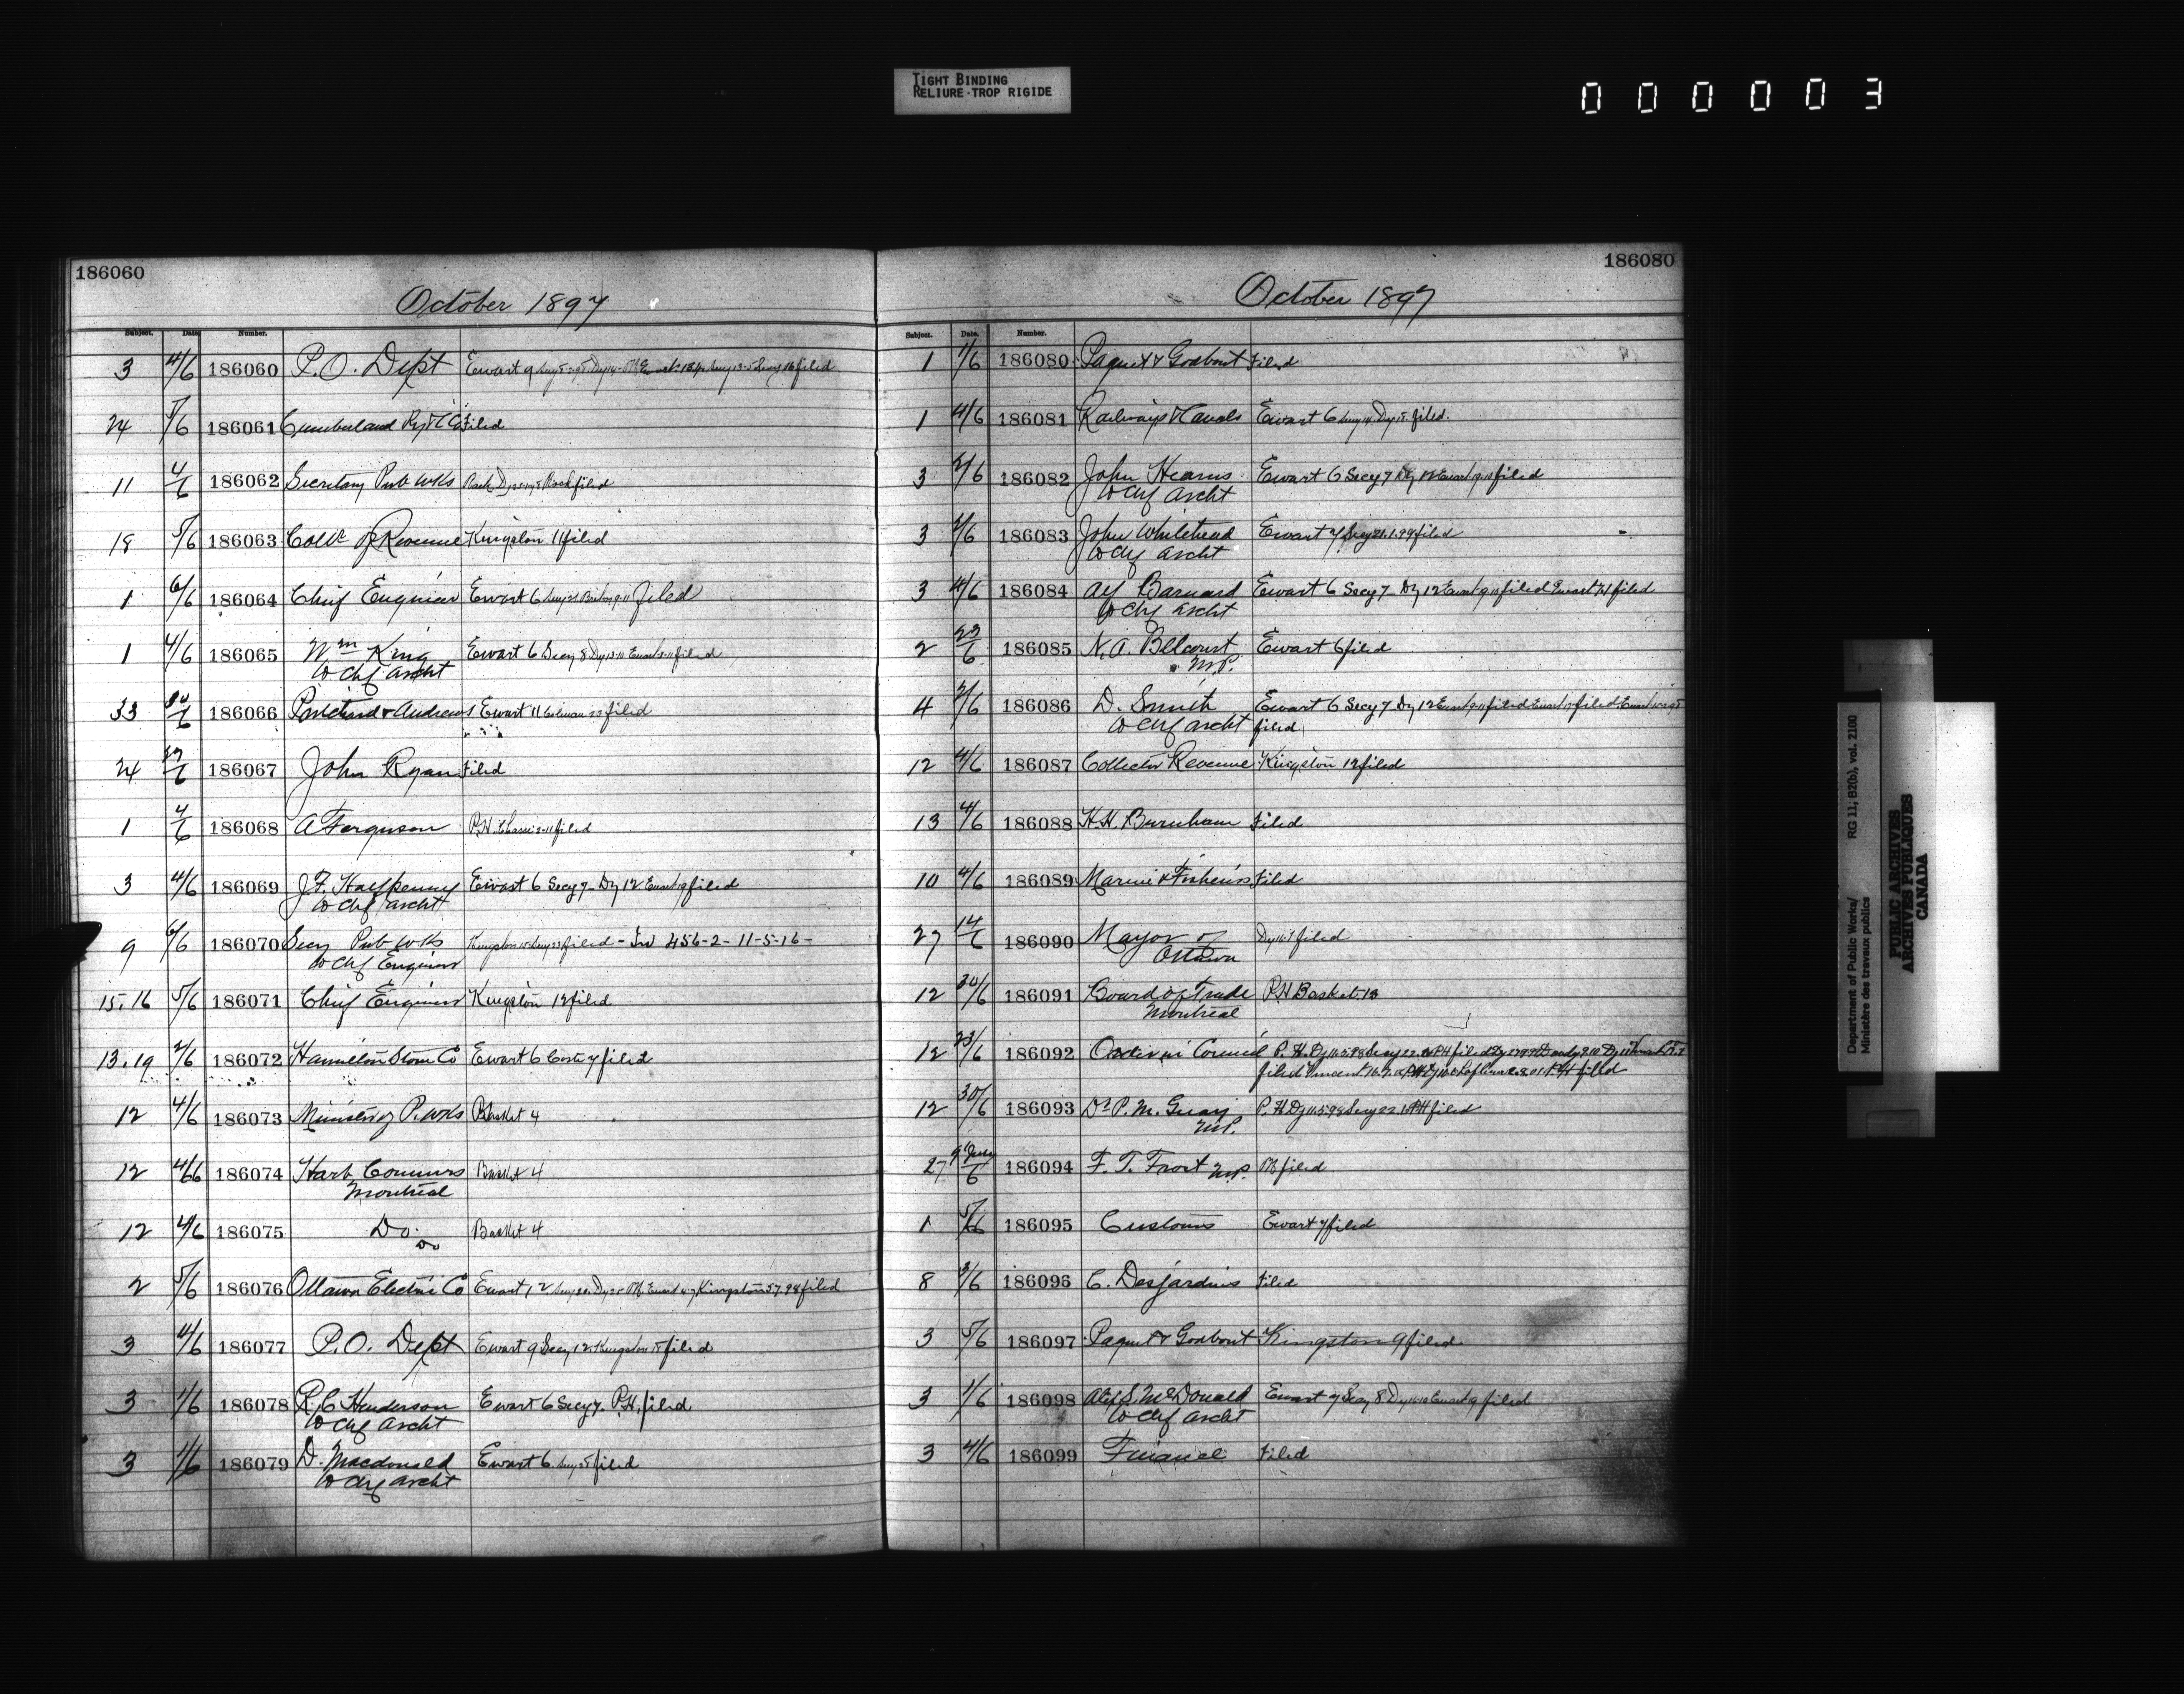 TIGHT BINDING
RELIURE-TROP RIGIDE
000003
186060
October 1897
Subject. Date. Number.
3 4/6 186060 P.O. Dept Ewart 9 filed
24 5/6 186061 Cumberland Ry & C Co Filed
11 4/6 186062 Secretary Pub Wks filed
18 5/6 186063 Collr of Revenue Kingston 11 filed
1 6/6 186064 Chief Engineer Ewart 6 filed
1 4/6 186065 Wm King Ewart 6 Secy 8 Dy 13-10 Ewart filed
to Chf Archt
33 186066 Pritchard & Andrews Ewart 11 filed
24 186067 John Ryan Filed
1 4/6 186068 A Ferguson P.H. filed
3 4/6 186069 J.F. Halfpenny Ewart 6 Secy 7 Dy 12 Ewart 19 filed
to Chf Archt
9 6/6 186070 Secy Pub Wks Kingston filed - 456-2- 11-5-16-
to Chf Engineer
15.16 5/6 186071 Chief Engineer Kingston 12 filed
13.19 2/6 186072 Hamilton Stone Co Ewart 6 filed
12 4/6 186073 Minister of P. Wks Basket 4
12 4/6 186074 Harb Commrs Basket 4
Montreal
12 4/6 186075 Do. Basket 4
Do
2 5/6 186076 Ottawa Electric Co Ewart 12 Kingston 5.7.98 filed
3 4/6 186077 P.O. Dept Ewart 9 Secy 12 Kingston 15 filed
3 1/6 186078 R.C Henderson Ewart 6 Secy 7. P.H. filed
to Chf Archt
3 1/6 186079 D. Macdonald Ewart 6 filed
to Chf Archt
186080
October 1897
Subject. Date. Number.
1 1/6 186080 Paquet & Godbout Filed
1 4/6 186081 Railways & Canals Ewart 6 Secy 14 Dy 15 filed.
3 2/6 186082 John Hearns Ewart 6 Secy 7 Dy 12 Ewart filed
to Chf Archt
3 2/6 186083 John Whitehead Ewart 7 filed
to Chf Archt
3 4/6 186084 Alf Barnard Ewart 6 Secy 7 Dy 12 Ewart filed Ewart filed
to Chf Archt
2 23/6 186085 N.A. Belcourt Ewart 6 filed
M.P.
4 2/6 186086 D. Smith Ewart 6 Secy 7 Dy 12 Ewart filed Ewart filed Ewart
to Chf Archt filed
12 4/6 186087 Collector Revenue Kingston 12 filed
13 4/6 186088 H.H. Burnham Filed
10 4/6 186089 Marine & Fisheries Filed
27 14/6 186090 Mayor of filed
Ottawa
12 30/6 186091 Board of Trade P.H Basket 13
Montreal
12 23/6 186092 Order in Council P.H. Dy 11.5.98 Secy 22. P.H filed
filed Vincent filed
12 30/6 186093 Dr P. M. Guay P.H Dy 11.5.98 Secy 22. P.H filed
M.P.
27 186094 F. T. Frost M.P. filed
1 5/6 186095 Customs Ewart 7 filed
8 3/6 186096 C. Desjardins Filed
3 5/6 186097 Paquet & Godbout Kingston 9 filed
3 1/6 186098 Alex S. McDonald Ewart 7 Secy 8 Ewart 19 filed
to Chf Archt
3 4/6 186099 Finance Filed
Department of Public Works/ RG 11, B2(b), vol. 2100
Ministère des travaux publics
PUBLIC ARCHIVES
ARCHIVES PUBLIQUES
CANADA